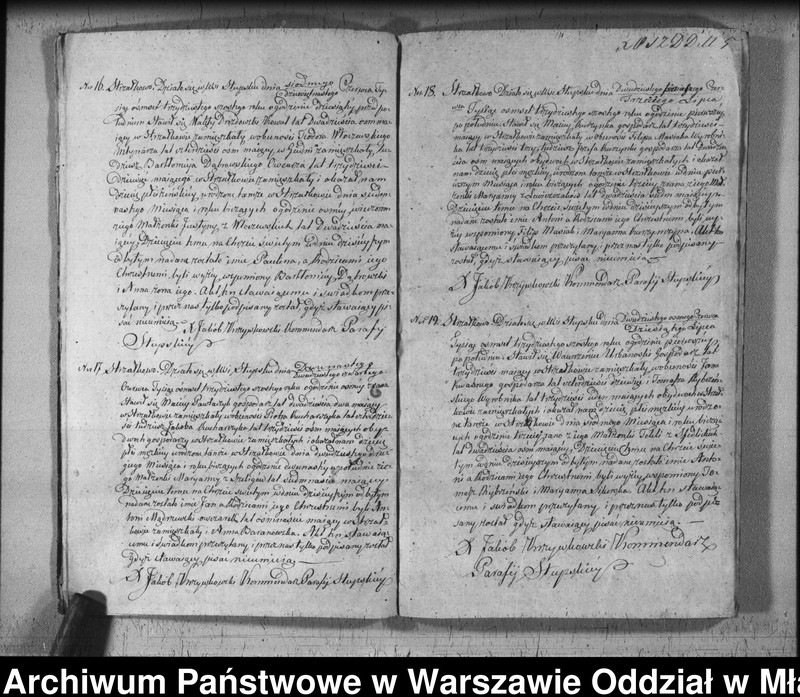 No 16. Strzałkowo. Działo się w Wsi Stupsku dnia siódmego
Dziewiętnastego Czerwca Ty-
siąc ośmset trzydziestego szóstego roku o godzinie dziesiątej przed po-
łudniem Stawił się Kowal lat dwadzieścia ośm ma-
iący w Strzałkowie zamieszkały w obecności Teodora
Młynarza lat czterdzieści ośm maiącego w zamieszkałego, tu-
dzież Bartłomieja Dąbrowskiego Owczarza lat trzydzieści
maiącego w Strzałkowie zamieszkałego i okazał nam
Dziecię płci żeńskiej, urodzone tamże w Strzałkowie dnia siedem-
nastego Miesiąca i roku bieżących o godzinie ósmej wieczorem
z iego Małżonki Justyny z lat dwadzieścia ma-
iącej, Dziecięciu temu na Chrzcie świętym w dniu dzisiejszym
odbytym nadane zostało imie Paulina, a Rodzicami iego
Chrzestnemi byli wyżej wspomniony Bartłomiej Dąbrowski
i Anna żona iego. Akt ten stawaiącemu i świadkom prze-
czytany, i przez nas tylko podpisany został gdyż stawaiący pi-
sać nieumieią.— X Jakób Krzyżkowski Kommendarz Parafij
Stupskiey
No 17. Strzałkowo. Działo się w Wsi Stupsku dnia Dwunastego
Dwudziestego czwartego
Czerwca Tysiąc ośmset trzydziestego szóstego roku o godzinie ósmej z rana
Stawił się Maciej gospodarz lat dwadzieścia dwa maiący
w Strzałkowie zamieszkały w obecności Piotra Kucharczyka lat czterdzie-
ści tudzież Jakóba Kucharczyka lat trzydzieści ośm maiących oby-
dwóch gospodarzy w Strzałkowie zamieszkałych i okazał nam dziecię
płci męzkiej urodzone tamże w Strzałkowie dnia dwudziestego dru-
giego Miesiąca i roku bieżących o godzinie dwunastej w południe z ie-
go Małżonki Maryanny z lat siedmnaście maiącej
Dziecięciu temu na Chrzcie świętym w dniu dzisiejszym odbytym
nadane zostało imie Jan a Rodzicami iego Chrzestnemi byli An-
toni maiący w Strzał-
kowie zamieszkały i Anna Baranowska. Akt ten stawaią-
cemu i świadkom przeczytany i przez nas tylko podpisany został
gdyż stawaiący pisać nieumieią —
X Jakób Krzyżkowski Kommendarz Parafij Stupskiey
No 18. Strzałkowo Działo się w Wsi Stupsku dnia Dwudziestego
Trzeciego Lipca
Tysiąc ośmset trzydziestego szóstego roku o godzinie pierwszej
po południu Stawił się Maciej gospodarz lat trzydzieści
maiący w Strzałkowie zamieszkały w obecności Filipa Wyrobni-
ka lat trzydzieści trzy, tudzież Józefa gospodarza lat dwadzie-
ścia ośm maiących obydwóch w Strzałkowie zamieszkałych i okazał
nam dziecię płci męzkiej, urodzone tamże w Strzałkowie w dniu pier-
wszym Miesiąca i roku bieżących o godzinie trzeciej z rana z iego Mał-
żonki Maryanny lat dwadzieścia siedm maiącej —
Dziecięciu temu na Chrzcie świętym w dniu dzisiejszym odbytym
nadane zostało imie Antoni a Rodzicami iego Chrzestnemi byli wy-
żej wspomniony Filip i Maryanna. Akt ten
stawaiącemu i świadkom przeczytany, i przez nas tylko podpisany
został, gdyż stawaiący pisać nieumieią —
X Jakób Krzyżkowski Kommendarz Parafij Stupskiey
No 19. Strzałkowo Działo się w Wsi Stupsku dnia Dwudziestego ósmego Czerwca
Dziesiątego Lipca
Tysiąc ośmset trzydziestego szóstego roku o godzinie pierwszej
po południu Stawił się Wawrzeniec Urbanoski gospodarz lat
trzydzieści maiący w Strzałkowie zamieszkały, w obecności Jana
gospodarza lat czterdzieści dziewięć i Tomasza Rybiń-
skiego Wyrobnika lat trzydzieści maiących obydwóch w Strzał-
kowie zamieszkałych i okazał nam dziecię płci męzkiej urodzo-
ne tamże w Strzałkowie dnia siódmego Miesiąca i roku bieżą-
cych o godzinie trzeciej z rana z iego Małżonki Tekli z
lat dwadzieścia ośm maiącej, Dziecięciu temu na Chrzcie świę-
tym w dniu dzisiejszym odbytym nadane zostało imie Anto-
ni a Rodzicami iego Chrzestnemi byli wyżej wspomniony To-
masz Rybiński i Maryanna Sikorska. Akt ten stawaią-
cemu i świadkom przeczytany, i przez nas tylko podpi-
sany został gdyż stawaiący pisać nieumieią.—
X Jakób Krzyżkowski Kommendarz
Parafij Stupskiey
Archiwum Państwowe w Warszawie Oddział w Mła